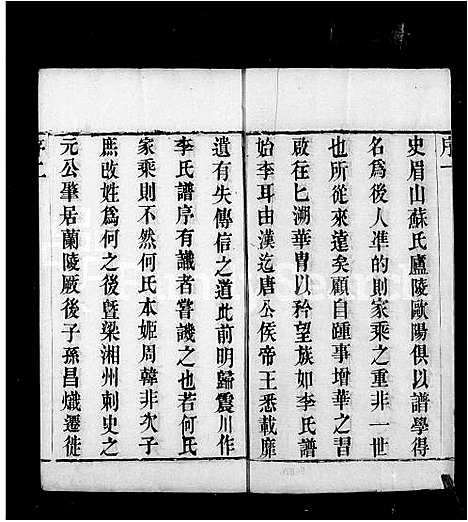 序一
史眉山蘇氏廬陵歐陽俱以譜學得
名為後人準的則家乘之重非一世
也所從來遠矣顧自踵事增華之習
啟往匕溯華冑以矜望族如李氏譜
始李耳由漢迄唐公侯帝王悉載靡
遺有失傳信之道此前明歸震川作
李氏譜序有識者嘗譏之也若何氏
家乘則不然何氏本姬周韓非次子
庶改姓為何之後曁梁湘州刺史之
元公肇居蘭陵厥後子孫昌熾遷徙
序二